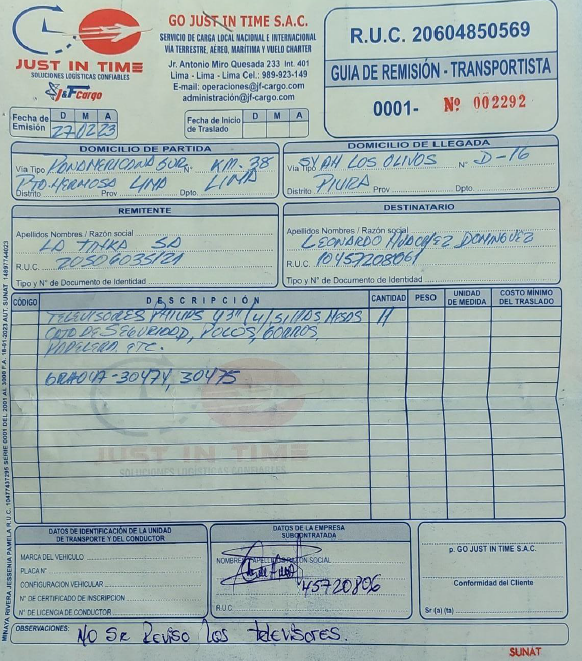 JUST IN TIME
SOLUCIONES LOGÍSTICAS CONFIABLES
J&F cargo
GO JUST IN TIME S.A.C.
SERVICIO DE CARGA LOCAL NACIONAL E INTERNACIONAL
VÍA TERRESTRE, AÉREO, MARÍTIMA Y VUELO CHARTER
Jr. Antonio Miro Quesada 233 Int. 401
Lima - Lima - Lima Cel.: 989-923-149
E-mail: operaciones@jf-cargo.com
administración@jf-cargo.com
R.U.C. 20604850569
GUIA DE REMISIÓN - TRANSPORTISTA
0001- Nº 002292
Fecha de Emisión D M A
27 02 23
Fecha de Inicio de Traslado D M A
DOMICILIO DE PARTIDA
Via Tipo PANAMERICANA SUR Nº KM. 38
PTO. HERMOSA LIMA LIMA
Distrito Prov Dpto
DOMICILIO DE LLEGADA
Via Tipo SY AH LOS OLIVOS Nº D-16
Distrito PIURA Prov. Dpto.
REMITENTE
Apellidos Nombres / Razón social
LA TINKA SA
R.U.C. 20506035121
Tipo y N° de Documento de Identidad
DESTINATARIO
Apellidos Nombres / Razón social
LEONARDO HUACHEZ DOMINGUEZ
R.U.C. 10457208061
Tipo y N° de Documento de Identidad
CÓDIGO DESCRIPCIÓN CANTIDAD PESO UNIDAD DE MEDIDA COSTO MÍNIMO DEL TRASLADO
TELEVISORES PHILIPS 43" (4) SILLAS MESAS 11
CAJA DE SEGURIDAD, POLOS, GORROS,
PAPELERA ETC.
30474, 30475
JUST IN TIME
SOLUCIONES LOGÍSTICAS CONFIABLES
DATOS DE IDENTIFICACIÓN DE LA UNIDAD DE TRANSPORTE Y DEL CONDUCTOR
MARCA DEL VEHICULO
PLACA N°
CONFIGURACION VEHICULAR
N° DE CERTIFICADO DE INSCRIPCION
N° DE LICENCIA DE CONDUCTOR
DATOS DE LA EMPRESA SUBCONTRATADA
NOMBRES / APELLIDOS RAZÓN SOCIAL
45720806
R.U.C.
p. GO JUST IN TIME S.A.C.
Conformidad del Cliente
Sr (a) (ta)
OBSERVACIONES: NO SE REVISO LOS TELEVISORES.
SUNAT